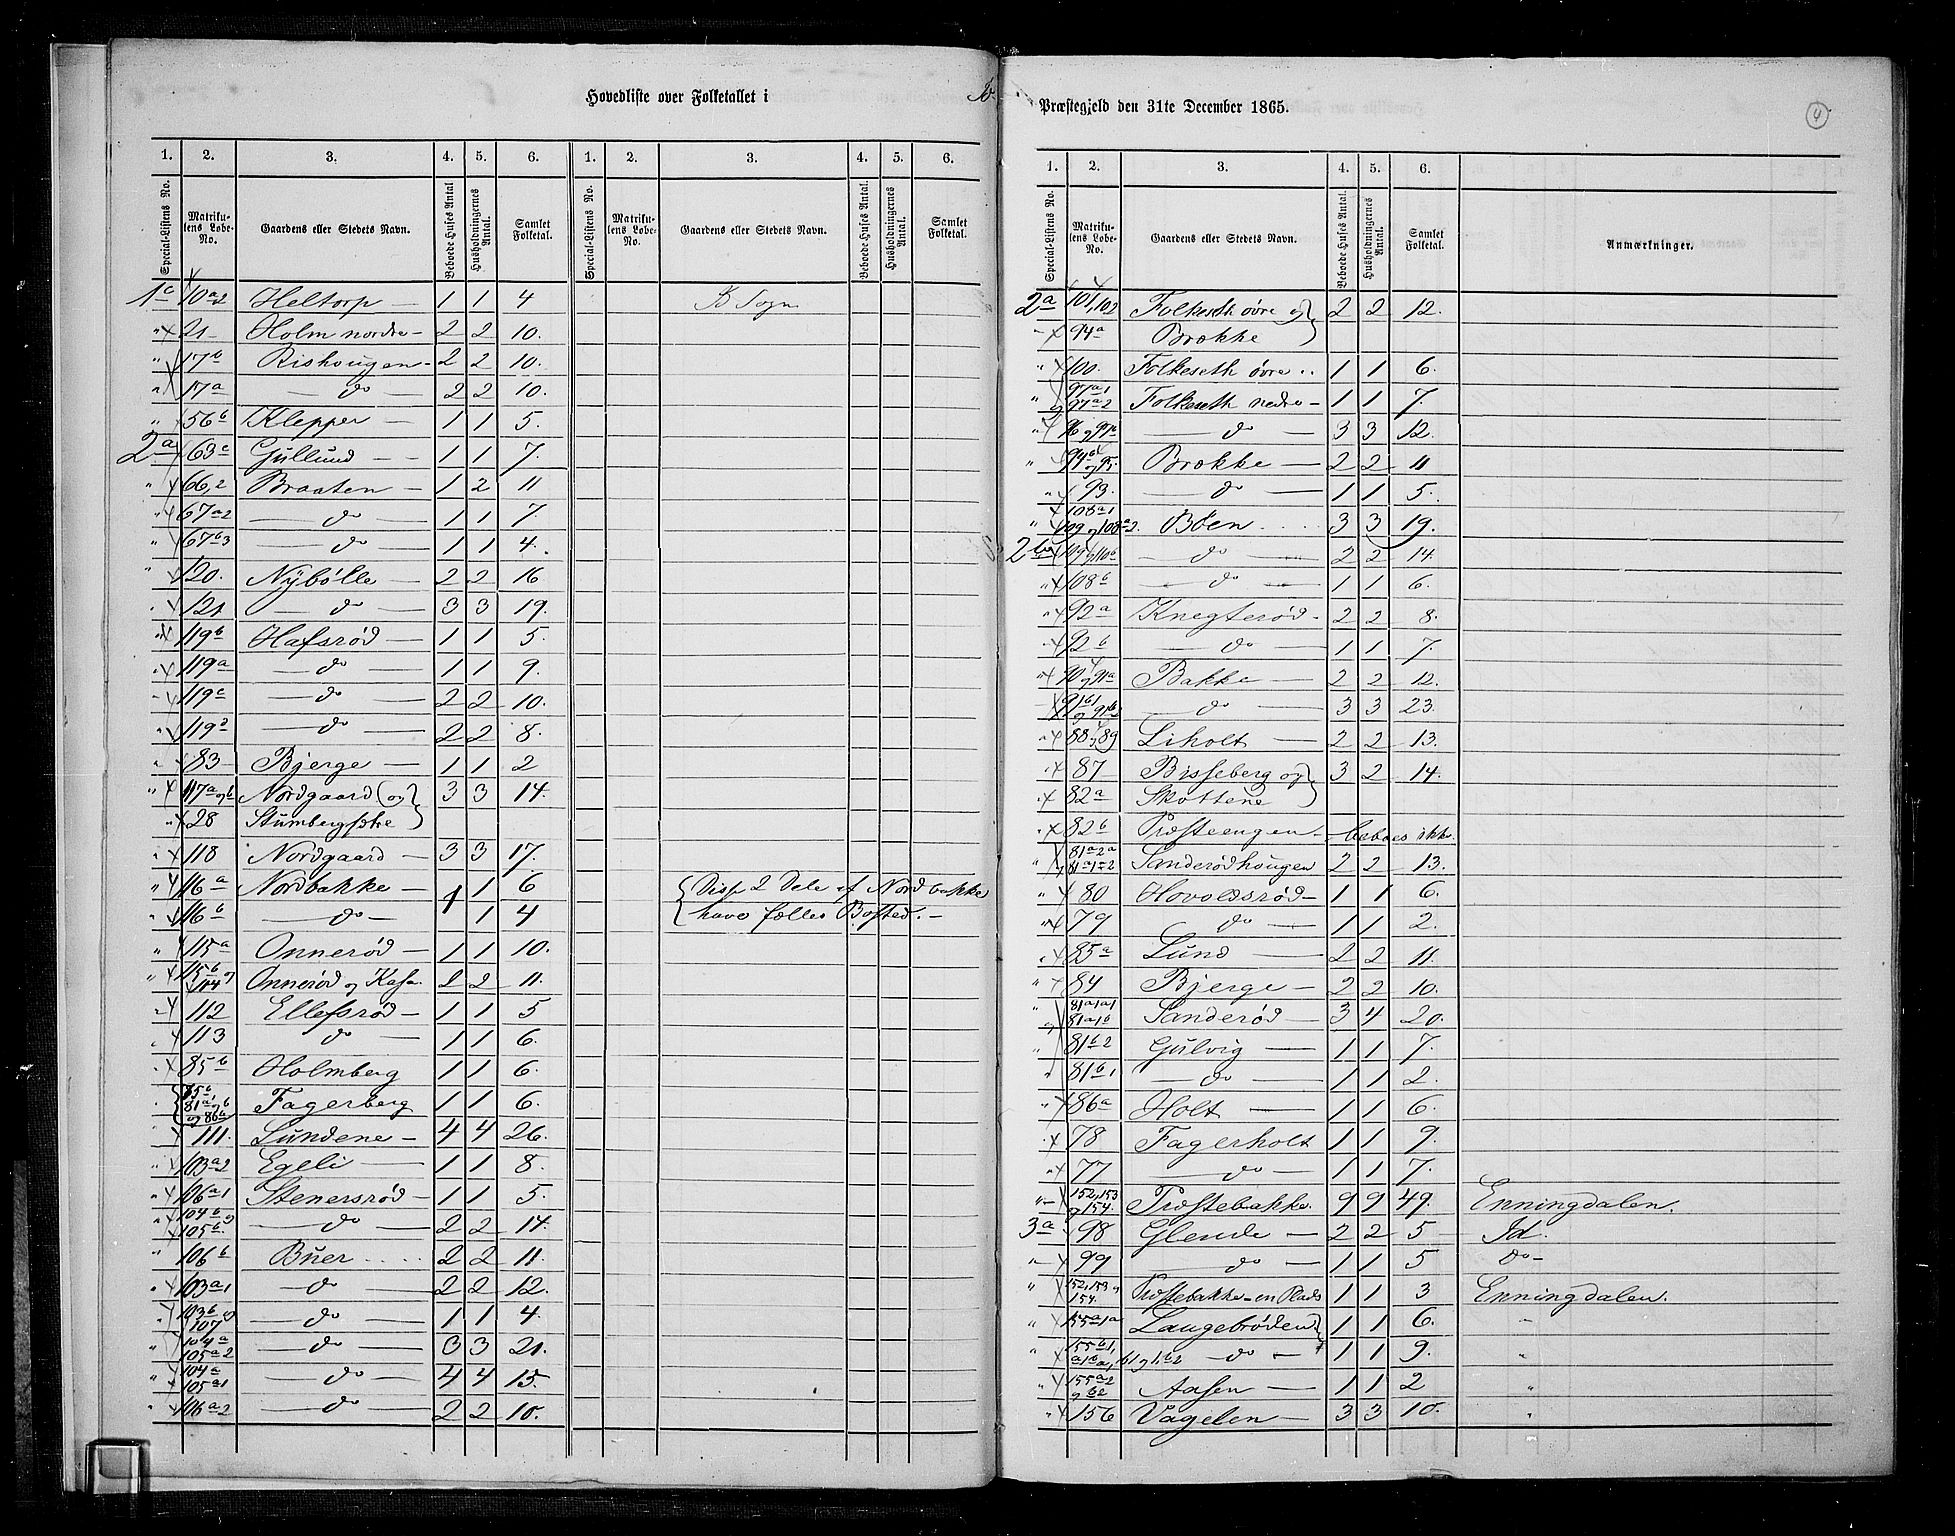 Hovedliste over Folketallet i
1. 2. 3. 4. 5. 6. 1. 2. 3. 4. 5. 6.
Special-Listens No. Matrikulens Løbe-No. Gaardens eller Stedets Navn. Beboede Huses Antal Husholdningernes Antal. Samlet Folketal. Special-Listens No. Matrikulens Løbe-No. Gaardens eller Stedets Navn. Beboede Huses Antal. Husholdningernes Antal. Samlet Folketal.
1c 10a2 Heltorp 1 1 4 Sogn
" 21 Holm nordre 2 2 10.
" 17b Rishougen 2 2 10.
" 17a do 2 2 10.
" 56b Klepper 1 1 5.
2a 63c Gullund 1 1 7.
" 66,2 Braaten 1 2 11
" 67a2 do 1 1 7.
" 67b3 do 1 1 4.
" 120. Nÿbölle 2 2 16
" 121 do 3 3 19.
" 119b Hafsrød 1 1 5.
" 119a do 1 1 9.
" 119c do 2 2 10.
" 119d do 2 2 8.
" 83 Bjerge 1 1 2
" 117a og b Nordgaard (og 3 3 14.
" 28
" 118 Nordgaard 3 3 17.
" 116a Nordbakke 1 1 6 Disse 2 Dele af Nordbakke
" 116b do 1 4 have fælles Bosted.
" 115a Onnerød 1 1 10.
" 115b og 114 Onnerød og Kasa 2 2 11.
" 112 Ellefsrød 1 1 5
" 113 do 1 1 6.
" 85b Holmberg 1 1 6.
Fagerberg 1 1 6.
111. Lundene 4 4 26.
" 103a2 Egeli 1 1 8.
" 106a1 Stenersrød 1 1 5.
" 104b og 105b do 2 2 14.
" 106b Buer 2 2 11.
" 103a1 do 2 2 12.
" 103b og 107 do 1 1 4.
" 104a 105a2 do 3 3 21.
" 104a 105a1 do 4 4 15.
" 106a2 do 2 2 10.
Præstegjeld den 31te December 1865.
4
1. 2. 3. 4. 5. 6.
Special-Listens No. Matrikulens Løbe-No. Gaardens eller Stedets Navn. Beboede Huses Antal. Husholdningernes Antal. Samlet Folketal. Anmærkninger.
2a 101,102 Folkeseth øvre og 2 2 12.
94a Brække
" 100. Folkeseth øvre 1 1 6.
" 97a1 og 97a2 Folkeseth nedre 1 1 7.
" do 3 3 12.
" 94b og 95. Brække 2 2 11
" 93. do 1 1 5.
" 108a1 109 og 108a2. Bøen 3 3 19.
2b do 2 2 14.
" 108b do 1 1 6.
" 92a Knegterød 2 2 8.
" 92b do 1 1 7.
" 90 og 91a Bakke 2 2 12.
91b1 og 91b2 do 3 3 23.
" 88 og 89 Liholt 2 2 13.
" 87 Bisseberg og 3 2 14.
" 82a Skottene
" 82b Præsteengen beboes ikke.
" 81a2a 81a1-2 Sanderødhougen 2 2 13.
" 80 Hovoldsrød 1 1 6.
" 79 do 1 1 2.
" 85a Lund 2 2 11.
" 84 Bjerge 2 2 10.
" 81a1a1 og 81a1b Sanderød 3 4 20.
" 81b2 Gulvig 1 1 7.
" 81b1 do 1 1 2.
" 86a Holt 1 1 6.
" 78 Fagerholt 1 1 9.
" 77 do 1 1 7.
" 152,153 og 154. Præstebakke. 9 9 49. Enningdalen.
3a 98 Glende 2 2 5 Id.
" 99 do 1 1 5 do
" 152,153 og 154. Præstebakke en Plads 1 1 3 Enningdalen.
" 155a1a Langebrøden 1 1 6. "
" do 1 1 9. "
" 155a2 Aasen 1 1 2 "
" 156 Vagelen 3 3 10. "